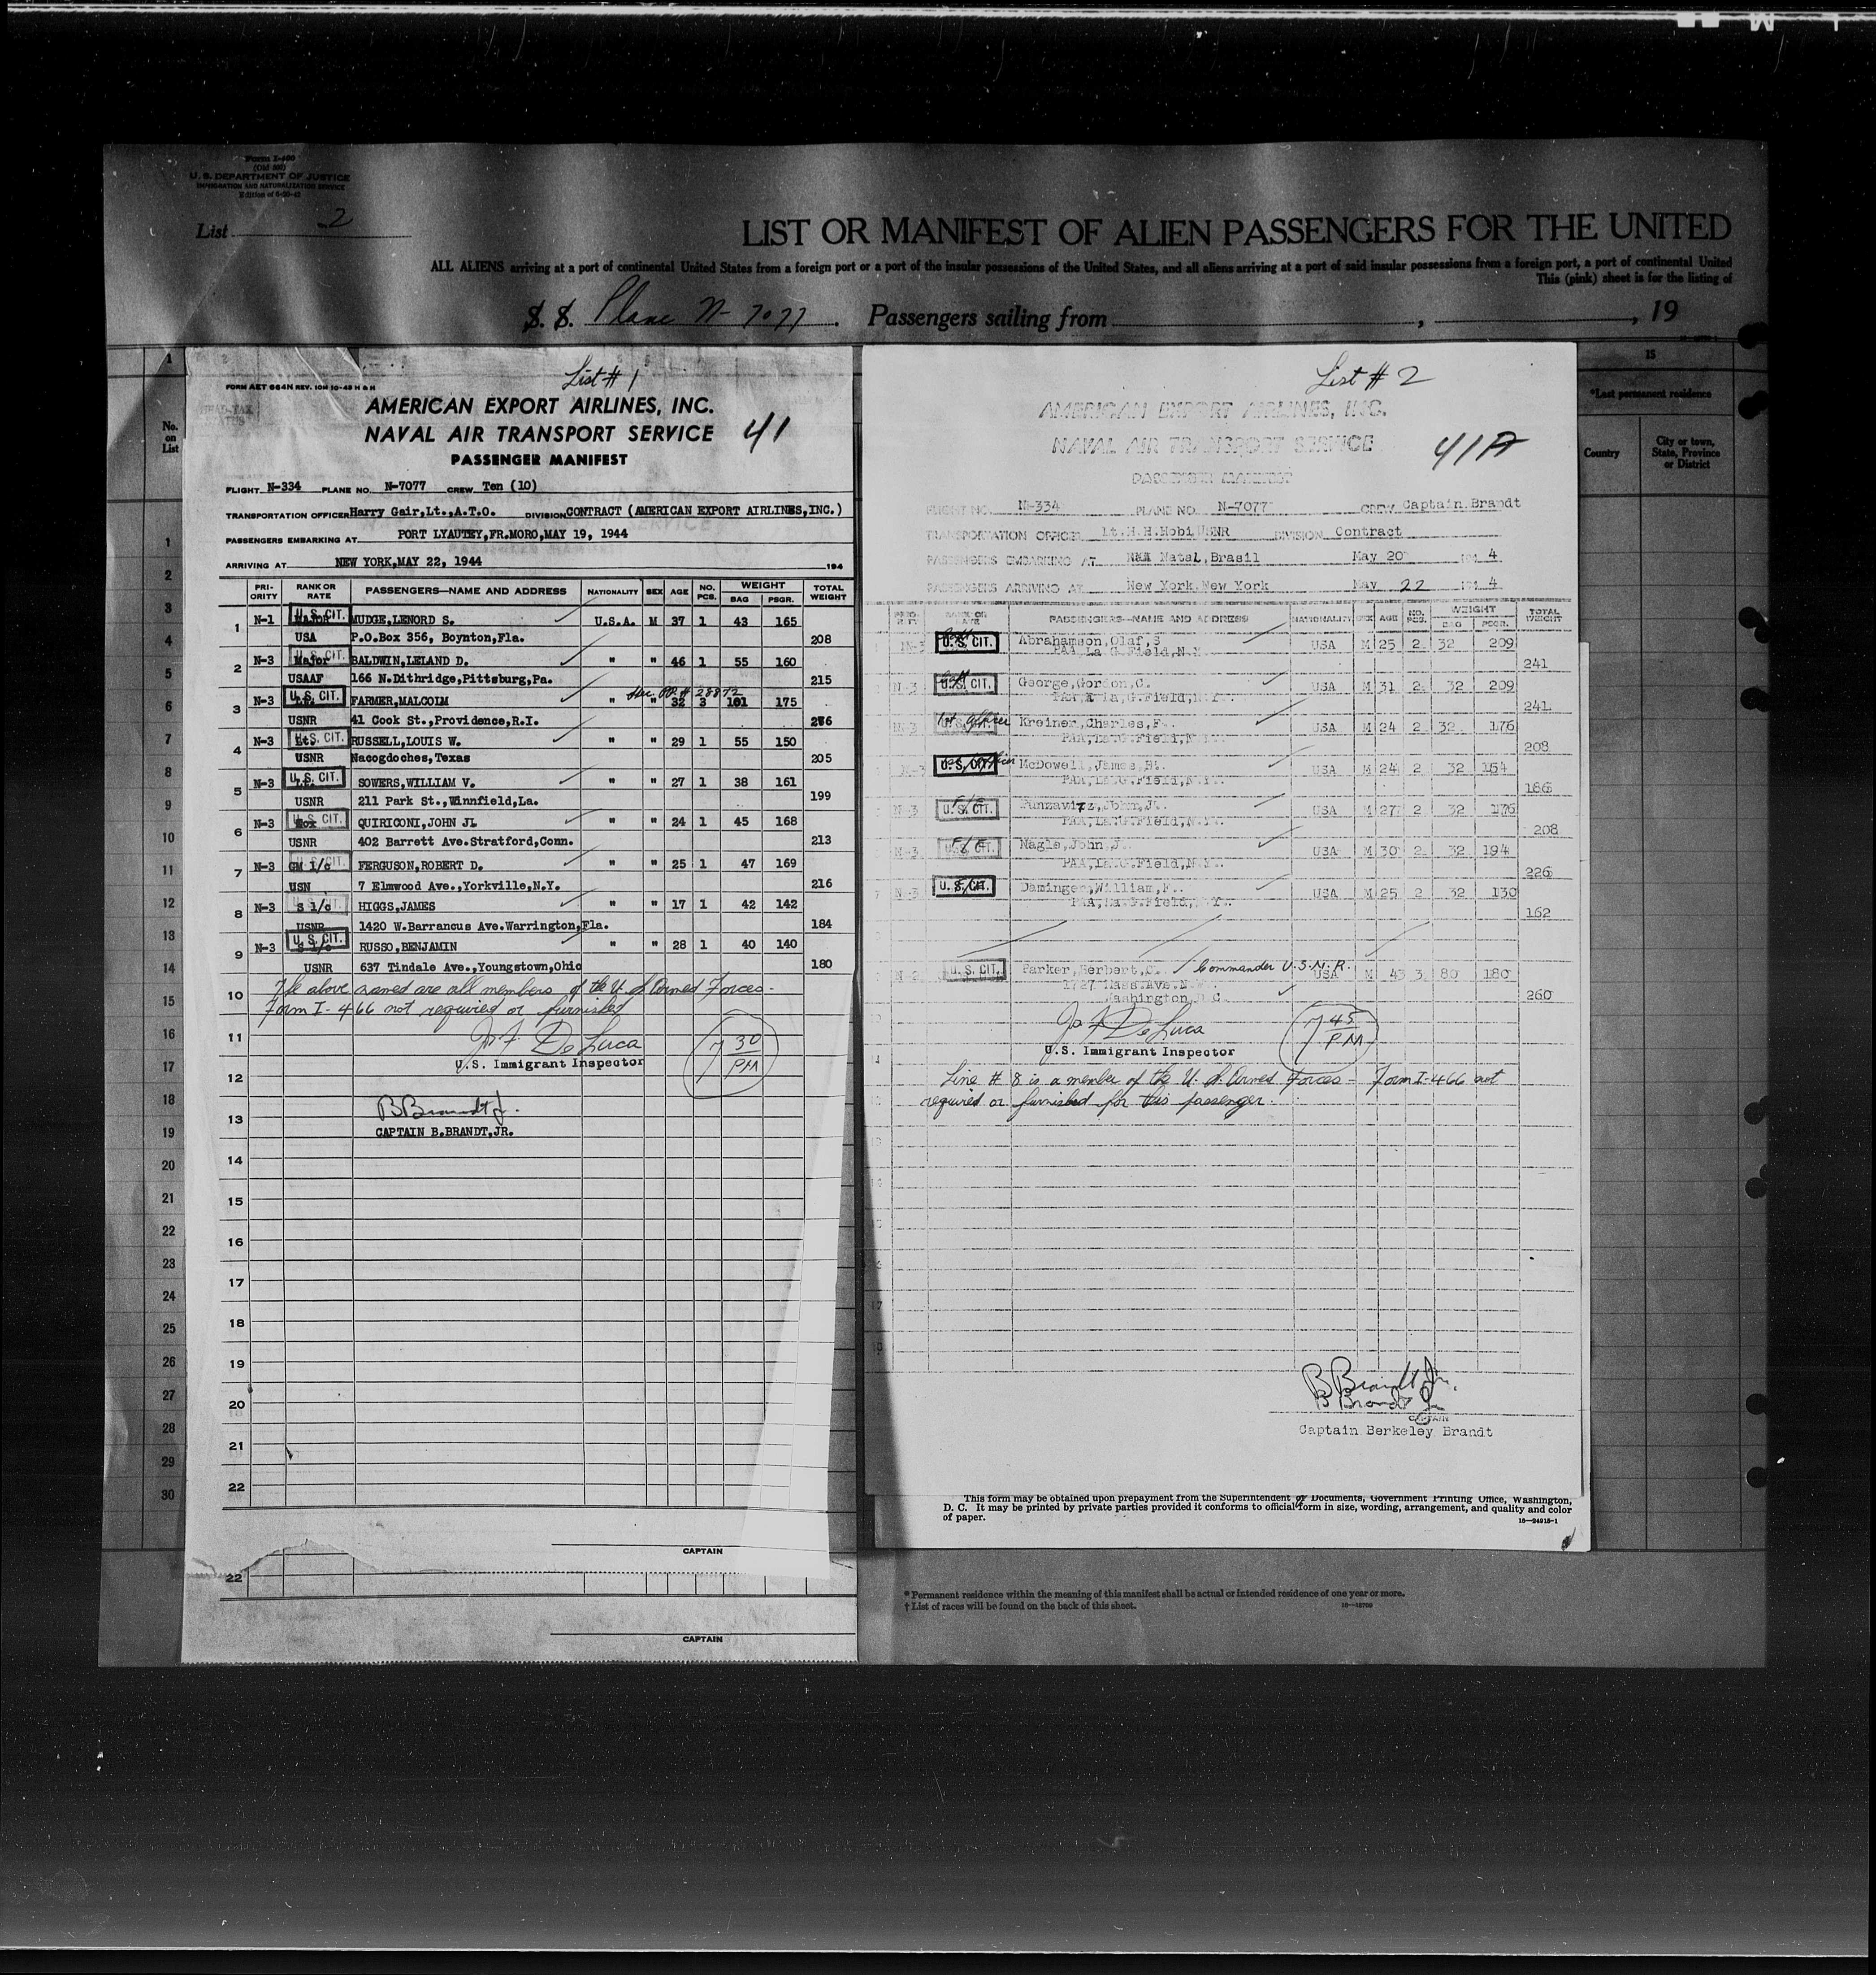 Form I-466
(Old 500)
U. S. DEPARTMENT OF JUSTICE
IMMIGRATION AND NATURALIZATION SERVICE
List 2
LIST OR MANIFEST OF ALIEN PASSENGERS FOR THE UNITED
ALL ALIENS arriving at a port of continental United States from a foreign port or a port of the insular possessions of the United States, and all aliens arriving at a port of said insular possessions from a foreign port, a port of continental United
This (pink) sheet is for the listing of
S. S. Plane N-7077. Passengers sailing from , , 19
No. on List
1
2
3
4
5
6
7
8
9
10
11
12
13
14
15
16
17
18
19
20
21
22
23
24
25
26
27
28
29
30
15
*Last permanent residence
Country
City or town, State, Province or District
List # 1
FORM AET 664N REV. 10M 10-43 H & H
AMERICAN EXPORT AIRLINES, INC.
NAVAL AIR TRANSPORT SERVICE 41
PASSENGER MANIFEST
FLIGHT N-334 PLANE NO. N-7077 CREW Ten (10)
TRANSPORTATION OFFICER Harry Gair,Lt.,A.T.O. DIVISION CONTRACT (AMERICAN EXPORT AIRLINES,INC.)
PASSENGERS EMBARKING AT PORT LYAUTEY,FR.MORO,MAY 19, 1944
ARRIVING AT NEW YORK,MAY 22, 1944 194
PRIORITY RANK OR RATE PASSENGERS—NAME AND ADDRESS NATIONALITY SEX AGE NO. PCS. WEIGHT BAG PSGR. TOTAL WEIGHT
1 N-1 U.S. CIT. Major MUDGE,LENORD S. U.S.A. M 37 1 43 165
USA P.O.Box 356, Boynton,Fla. 208
2 N-3 U.S. CIT. Major BALDWIN,LELAND D. " " 46 1 55 160
USAAF 166 N.Dithridge,Pittsburg,Pa. 215
3 N-3 U.S. CIT. Lt. FARMER,MALCOLM " " 32 3 101 175
28872
USNR 41 Cook St.,Providence,R.I. 276
4 N-3 U.S. CIT. Lt. RUSSELL,LOUIS W. " " 29 1 55 150
USNR Nacogdoches,Texas 205
5 N-3 U.S. CIT. Lt. SOWERS,WILLIAM V. " " 27 1 38 161
USNR 211 Park St.,Winnfield,La. 199
6 N-3 U.S. CIT. Sox QUIRICONI,JOHN JL " " 24 1 45 168
USNR 402 Barrett Ave.Stratford,Conn. 213
7 N-3 U.S. CIT. GM 1/c FERGUSON,ROBERT D. " " 25 1 47 169
USN 7 Elmwood Ave.,Yorkville,N.Y. 216
8 N-3 U.S. CIT. S 1/c HIGGS,JAMES " " 17 1 42 142
USNR 1420 W.Barrancus Ave.Warrington,Fla. 184
9 N-3 U.S. CIT. S 1/c RUSSO,BENJAMIN " " 28 1 40 140
USNR 637 Tindale Ave.,Youngstown,Ohio 180
The above named are all members of the U. S. Armed Forces -
Form I-466 not required or furnished
10
11
12
13
14
15
16
17
18
19
20
21
22
Jo. F. De Luca
U.S. Immigrant Inspector
7 30 PM
B Brandt Jr.
CAPTAIN B.BRANDT,JR.
CAPTAIN
22
CAPTAIN
List # 2
AMERICAN EXPORT AIRLINES, INC.
NAVAL AIR TRANSPORT SERVICE
41A
PASSENGER MANIFEST
FLIGHT NO. N-334 PLANE NO. N-7077 CREW Captain Brandt
TRANSPORTATION OFFICER Lt.H.H.Hobi,USNR DIVISION Contract
PASSENGERS EMBARKING AT Natal,Brasil May 20 194 4
PASSENGERS ARRIVING AT New York,New York May 22 194 4
PRIORITY RANK OR RATE PASSENGERS—NAME AND ADDRESS NATIONALITY SEX AGE NO. PCS. WEIGHT BAG PSGR. TOTAL WEIGHT
N-3 U.S. CIT. Abrahamson,Olaf,S USA M 25 2 32 209
PAA La G.Field,N.Y. 241
N-3 U.S. CIT. George,Gordon,C. USA M 31 2 32 209
PAA La.G.Field,N.Y. 241
N-3 U.S. CIT. 1st Officer Kreiner,Charles,F. USA M 24 2 32 176
PAA,La.G.Field,N.Y. 208
N-3 U.S. CIT. McDowell,James,R. USA M 24 2 32 154
PAA,La.G.Field,N.Y. 186
N-3 U.S. CIT. F/E Panzavitz,John,J. USA M 27 2 32 176
PAA,La.G.Field,N.Y. 208
N-3 U.S. CIT. F/E Nagle,John,J. USA M 30 2 32 194
PAA,La.G.Field,N.Y. 226
7 N-3 U.S. CIT. Daminger,William,F. USA M 25 2 32 130
PAA,La.G.Field,N.Y. 162
N-2 U.S. CIT. Parker,Herbert,C. Commander U.S.N.R. USA M 43 3 80 180
1727 Mass.Ave.N.W.
Washington,D.C. 260
Jo. F. De Luca
U.S. Immigrant Inspector
7 45 PM
Line # 8 is a member of the U. S. Armed Forces - Form I-466 not
required or furnished for this passenger.
B Brandt Jr.
B Brandt Jr
CAPTAIN
Captain Berkeley Brandt
This form may be obtained upon prepayment from the Superintendent of Documents, Government Printing Office, Washington,
D. C. It may be printed by private parties provided it conforms to official form in size, wording, arrangement, and quality and color
of paper.
16—24915-1
* Permanent residence within the meaning of this manifest shall be actual or intended residence of one year or more.
† List of races will be found on the back of this sheet.